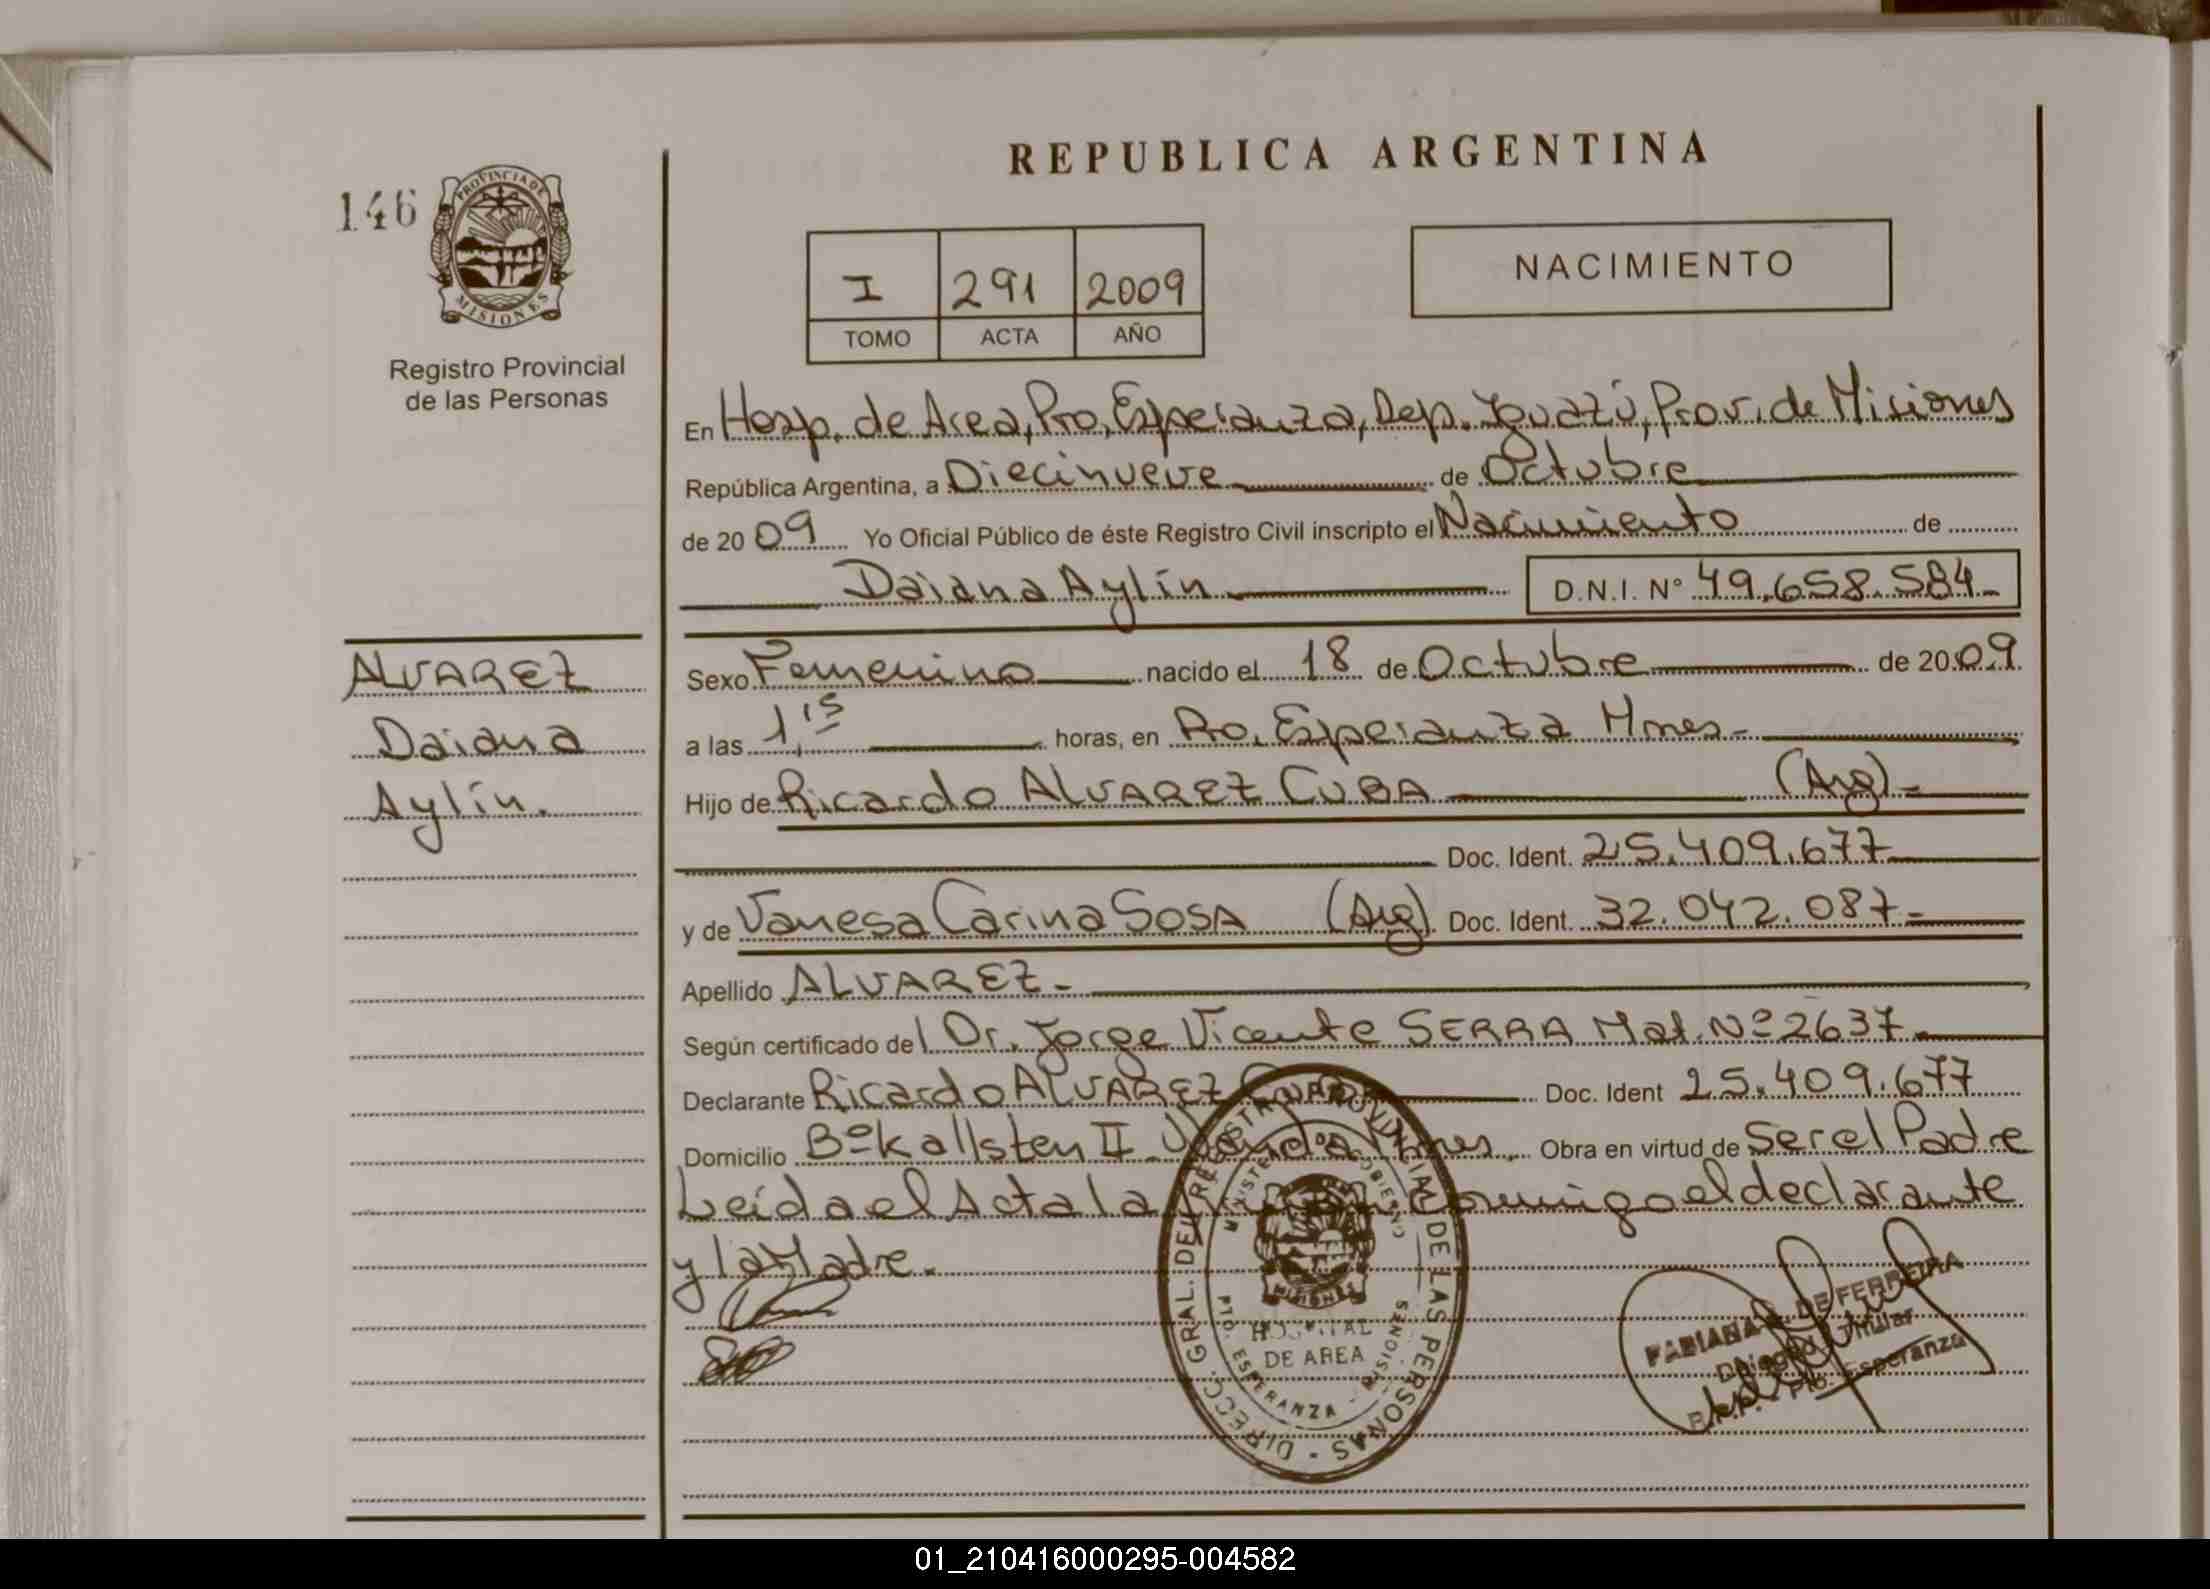 REPUBLICA ARGENTINA
146
PROVINCIA DE
MISIONES
Registro Provincial
de las Personas
I 291 2009
TOMO ACTA AÑO
NACIMIENTO
En Hosp. de Area, Pto. Esperanza, Dep. Iguazú, Prov. de Misiones
República Argentina, a Diecinueve de Octubre
de 20 09 Yo Oficial Público de éste Registro Civil inscripto el Nacimiento de
Daiana Aylín D.N.I. Nº 49.658.584
ALVAREZ
Daiana
Aylín.
Sexo Femenino nacido el 18 de Octubre de 20 09
a las 1,15 horas, en Pto. Esperanza Mnes-
Hijo de Ricardo ALVAREZ CUBA (Arg)-
Doc. Ident. 25.409.677
y de Vanesa Carina SOSA (Arg). Doc. Ident. 32.042.087-
Apellido ALVAREZ-
Según certificado del Dr. Jorge Vicente SERRA Mat. Nº 2637-
Declarante Ricardo ALVAREZ Doc. Ident 25.409.677
Domicilio Bº Kallsten II Mnes. Obra en virtud de Ser el Padre
Leída el Acta la conmigo el declarante
y la Madre.
DIRECC. GRAL. DEL REGISTRO PROVINCIAL DE LAS PERSONAS
MISIONES
HOSPITAL
DE AREA
PTO. ESPERANZA - MISIONES
FABIANA DE FERREIRA
Titular
Pto. Esperanza
01_210416000295-004582